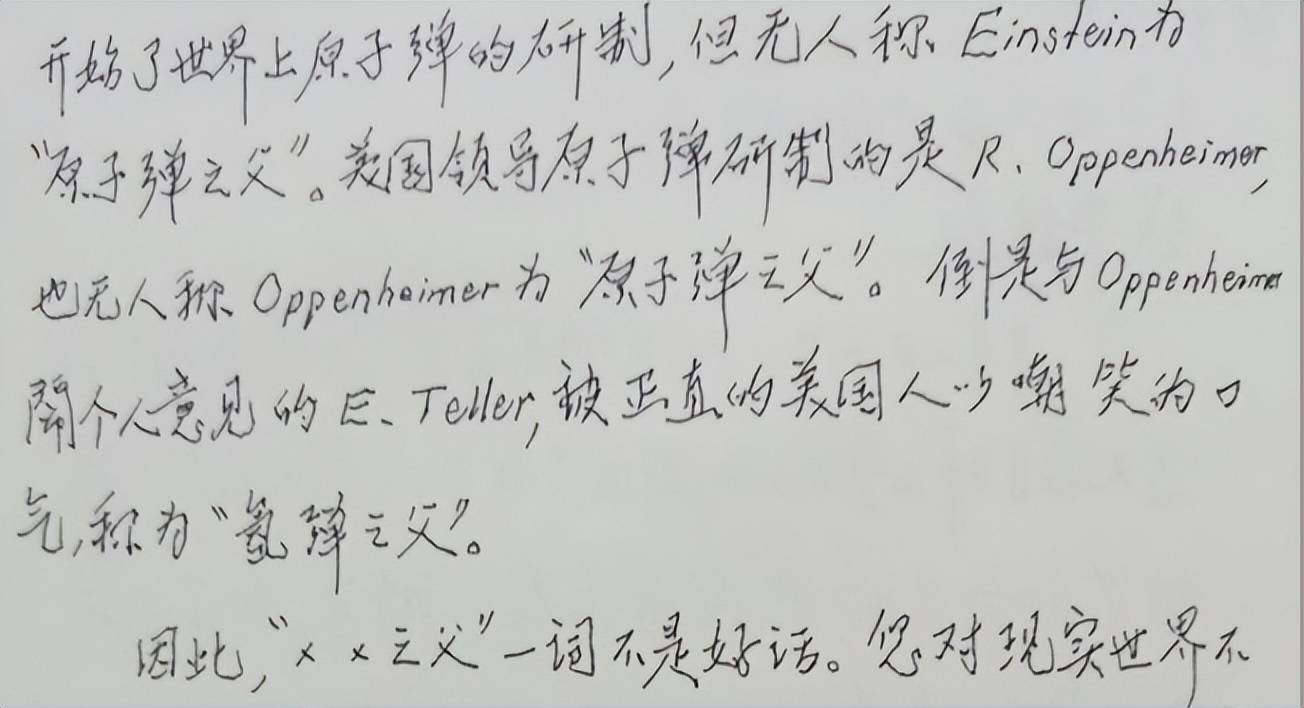 开始了世界上原子弹的研制,但无人称 Einstein为
“原子弹之父”。美国领导原子弹研制的是 R. Oppenheimer,
也无人称 Oppenheimer 为“原子弹之父”。倒是与 Oppenheimer
闹个人意见的 E. Teller,被正直的美国人以嘲笑的口
气,称为“氢弹之父”。
因此,“××之父”一词不是好话。您对现实世界不